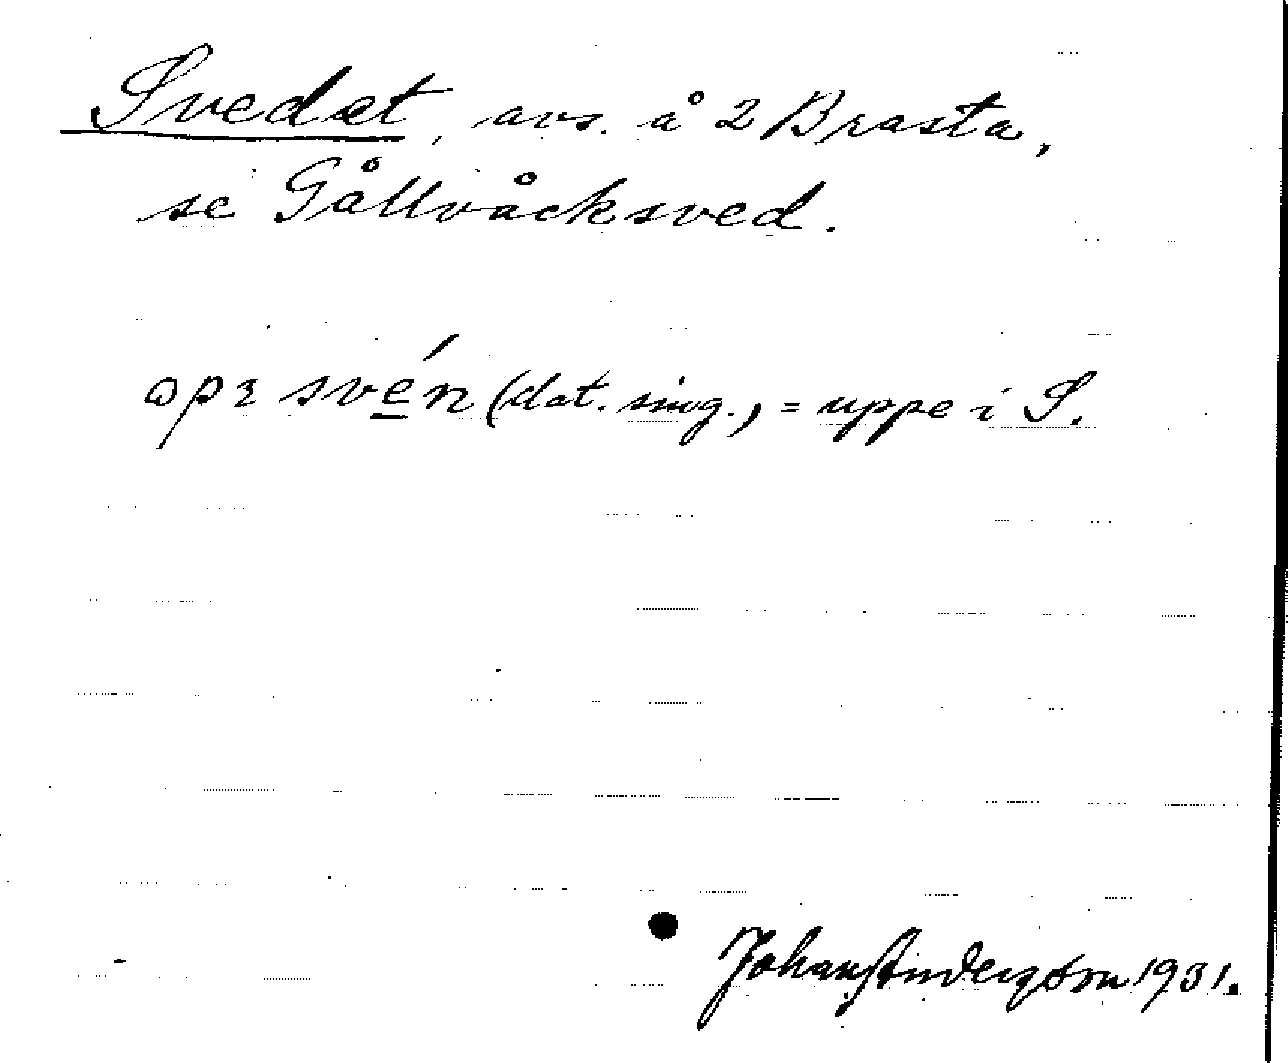 Svedet, avs. å 2 Brasta,
se Gållvåcksved.
opɛ své̱n (dat. sing.) = uppe i S.
Johan Anderzon 1931.